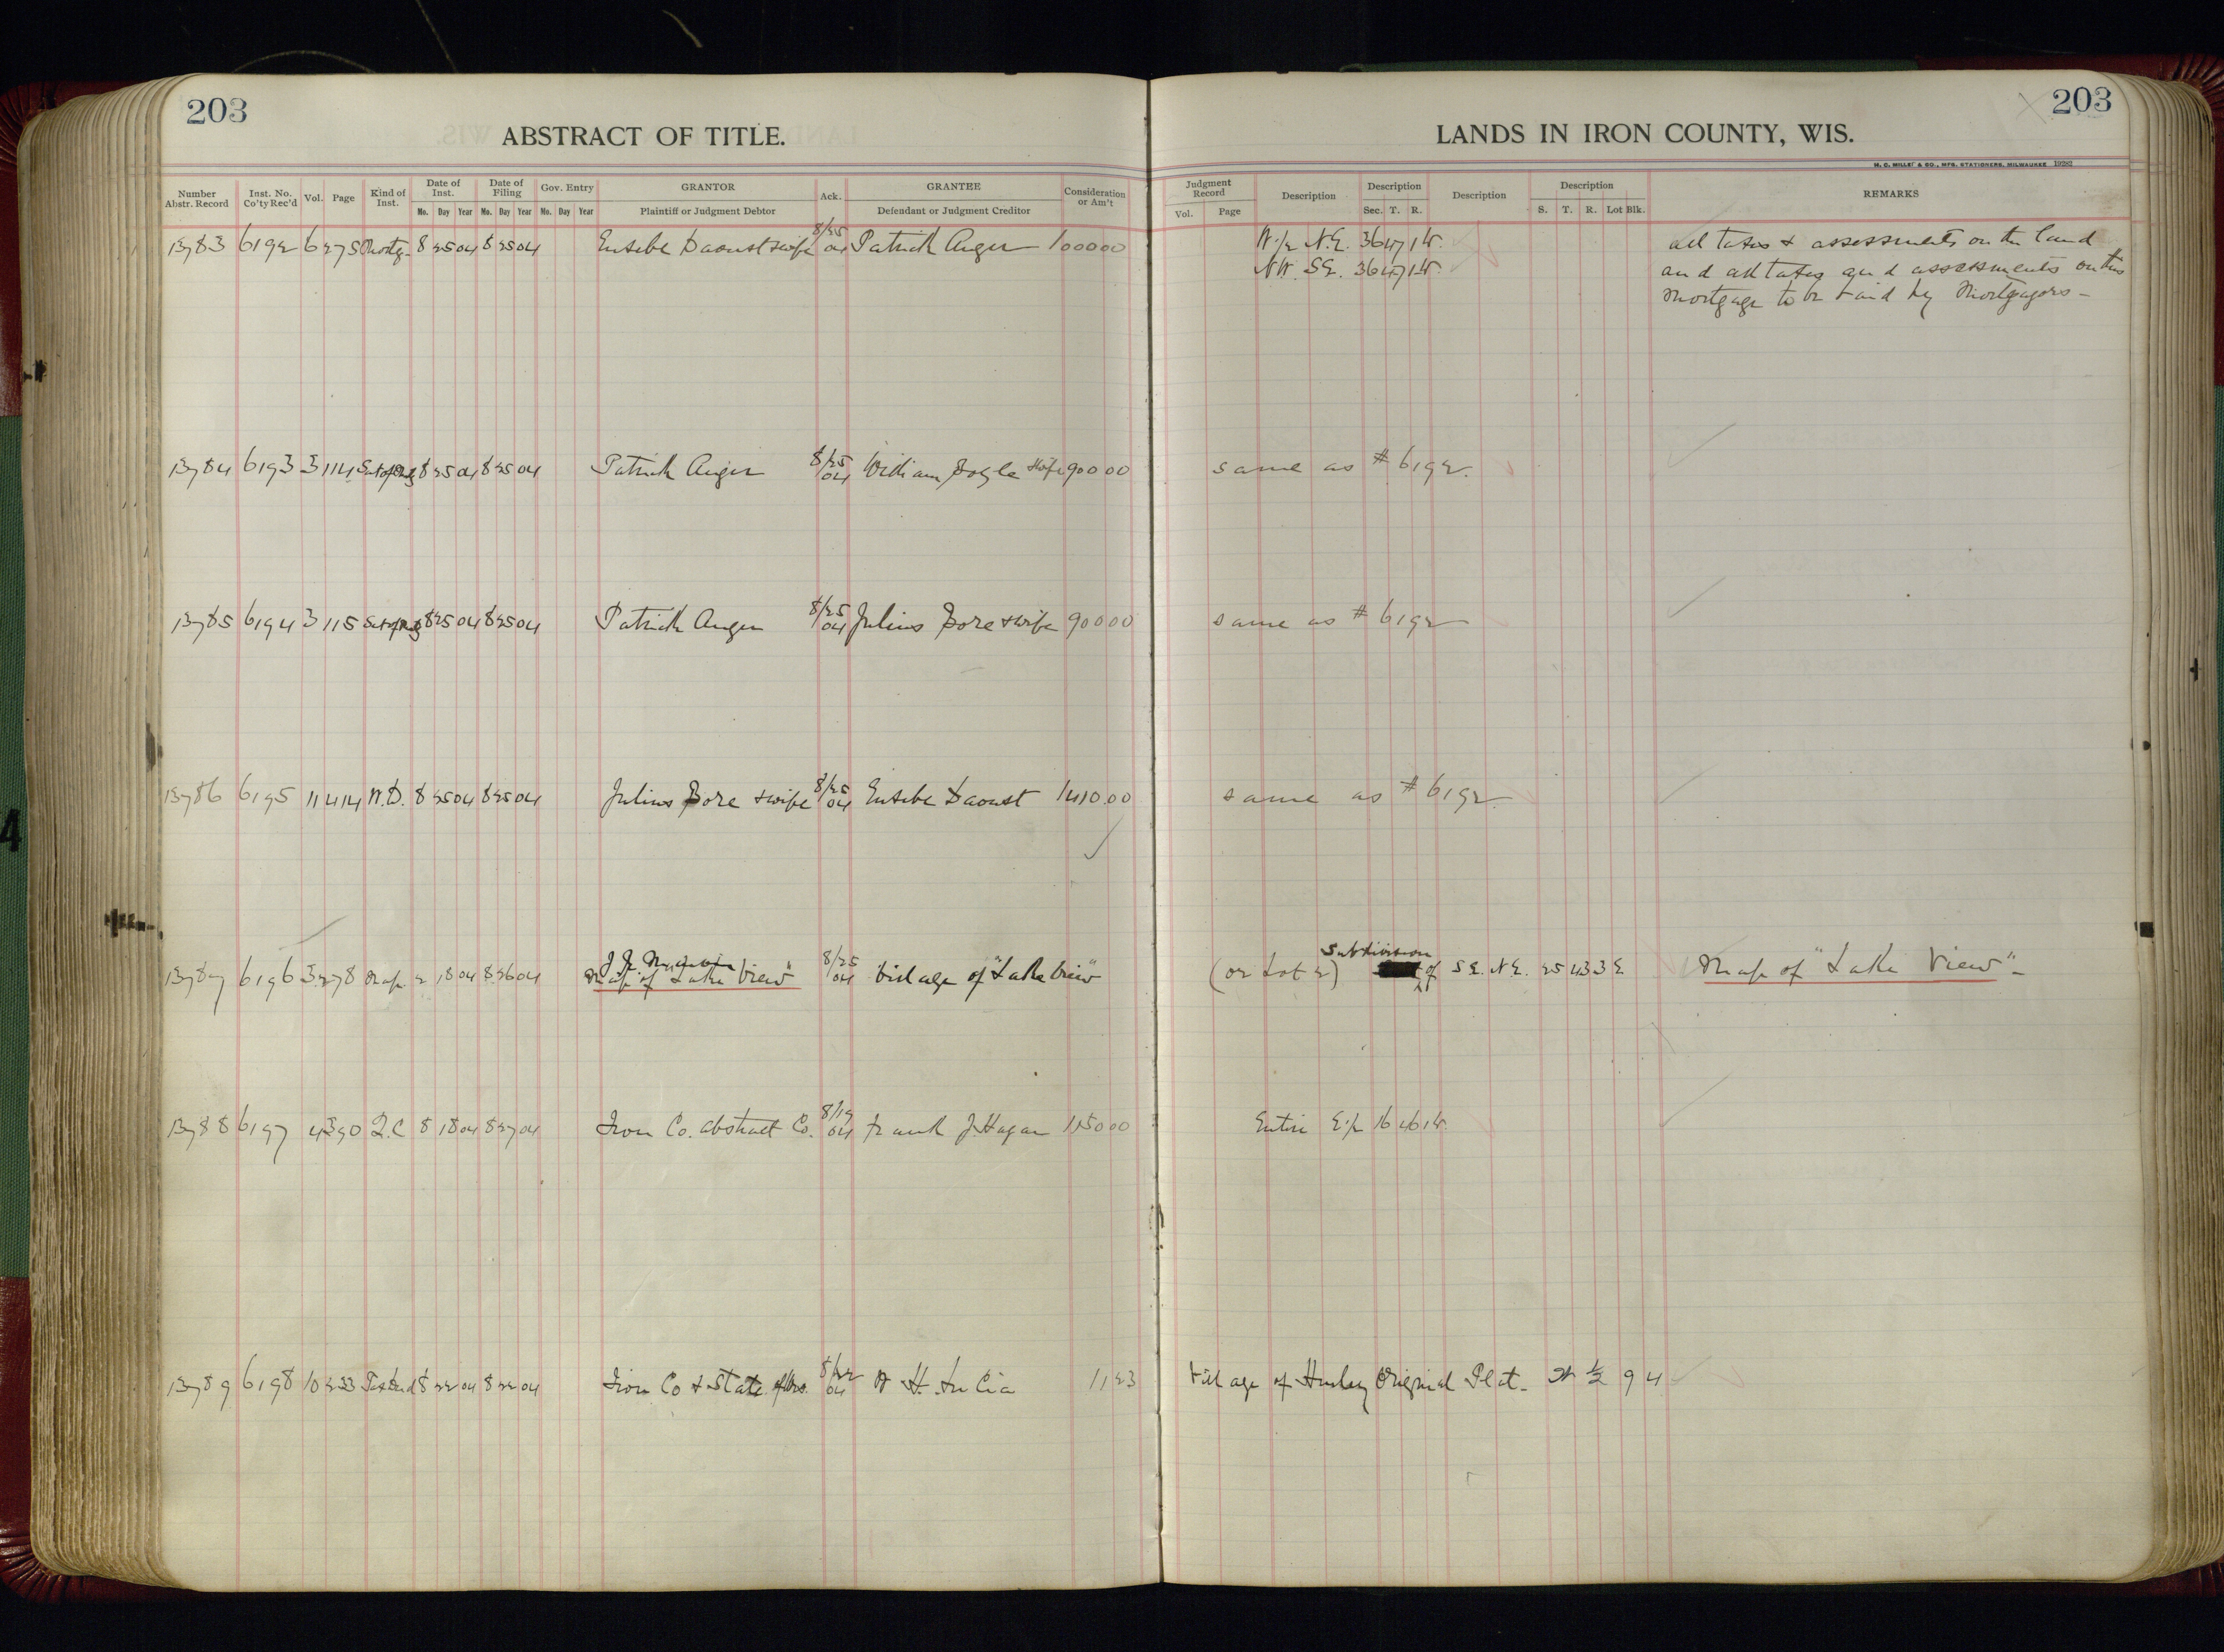 203
ABSTRACT OF TITLE.
203
LANDS IN IRON COUNTY, WIS.
H. C. MILLER & CO., MFG. STATIONERS, MILWAUKEE 19282
Number Abstr. Record Inst. No. Co'ty Rec'd Vol. Page Kind of Inst. Date of Inst. Mo. Day Year Date of Filing Mo. Day Year Gov. Entry Mo. Day Year GRANTOR Plaintiff or Judgment Debtor Ack. GRANTEE Defendant or Judgment Creditor Consideration or Am't
Judgment Record Vol. Page Description Description Sec. T. R. Description Description S. T. R. Lot Blk. REMARKS
13783 6192 6 275 Mortg. 8 25 04 8 25 04 Eusebe Daoust & wife 8/25 04 Patrick Auger 1000 00 W.1/2 N.E. 36 47 1W. all taxes & assessments on the land
NW. SE. 36 47 1W. and all taxes and assessments on this
mortgage to be paid by Mortgagors –
13784 6193 3 114 Sat of Mtg 8 25 04 8 25 04 Patrick Auger 8/25 04 William Doyle & wife 900 00 same as # 6192.
13785 6194 3 115 Sat of Mtg 8 25 04 8 25 04 Patrick Auger 8/25 04 Julius Bore & wife 900 00 same as # 6192
13786 6195 11 414 W.D. 8 25 04 8 25 04 Julius Bore & wife 8/25 04 Eusebe Daoust 1410.00 same as # 6192
Subdivision
13787 6196 3 278 Map 2 18 04 8 26 04 J. J. Map of "Lake View" 8/25 04 Village of "Lake View" (or Lot 2) of S.E. N.E. 25 43 3 E Map of "Lake View" –
13788 6197 4 390 Q.C 8 18 04 8 27 04 Iron Co. Abstract Co. 8/19 04 Frank J. Hagan 150 00 Entire E.1/2 16 46 1W.
13789 6198 10 233 Tax Deed 8 22 04 8 22 04 Iron Co & State of Wis. 8/22 04 W. H. 11 23 Village of Hurley Original Plat – N 1/2 9 4